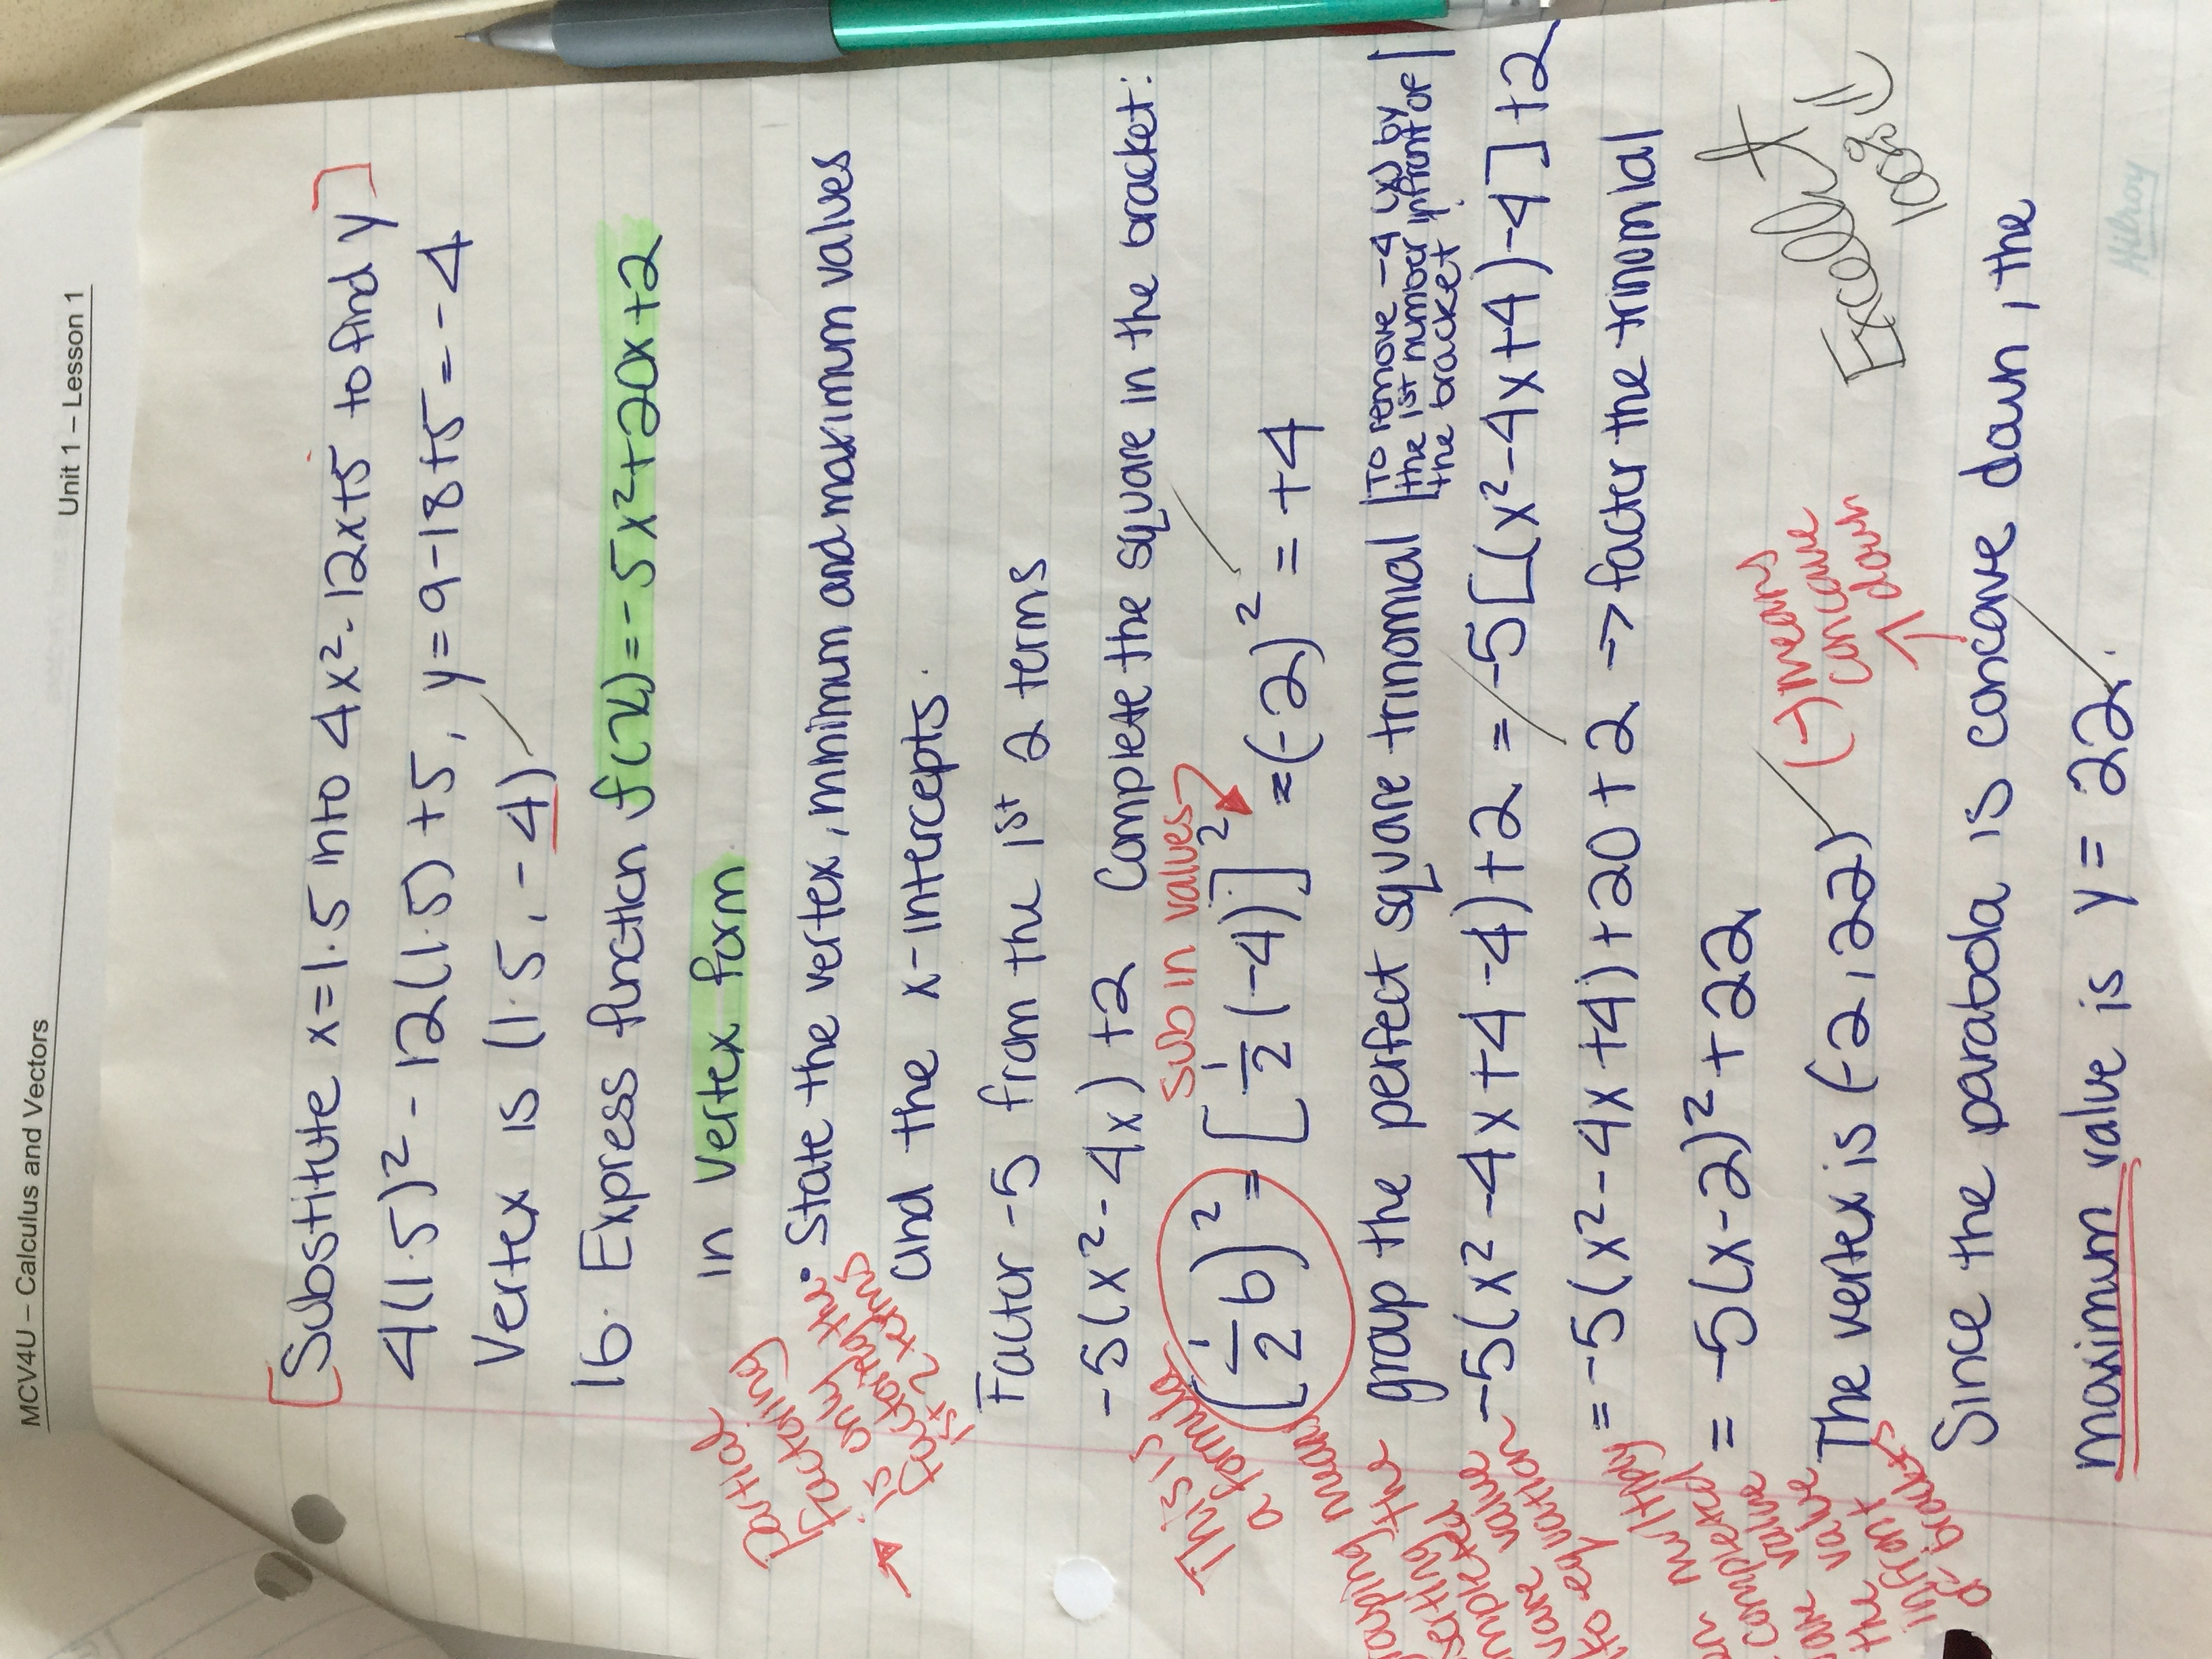 MCV4U – Calculus and Vectors
Unit 1 – Lesson 1
[Substitute x=1.5 into 4x²-12x+5 to find y]
4(1.5)² - 12(1.5) +5, y=9-18+5=-4
Vertex is (1.5, -4)
16. Express function f(x)=-5x²+20x+2
in vertex form
State the vertex, minimum and maximum values
and the x-intercepts.
Partial
Factoring
is only the
factoring the
1st 2 terms
Factor -5 from the 1st 2 terms
-5(x²-4x)+2 Complete the square in the bracket:
This is
a formula
sub in values
(1/2 b)² = [1/2(-4)]² =(-2)² = +4
group the perfect square trinomial
To remove -4 (x) by
the 1st number infront of
the bracket
-5(x²-4x+4-4)+2 = -5[(x²-4x+4)-4]+2
=-5(x²-4x+4)+20+2 → factor the trinomial
= -5(x-2)²+22
The vertex is (-2,22)
(-) means
concave
down
Excellent
100%!!
Since the parabola is concave down, the
maximum value is y = 22.
the value
infront
of brackets
Hilroy